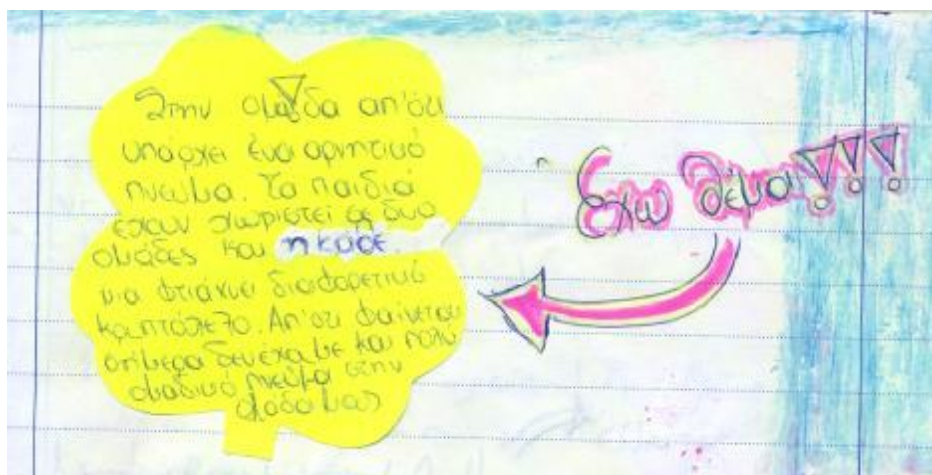 Στην ομάδα απ'ότι
υπάρχει ένα αρνητικό
πνεύμα. Τα παιδιά
έχουν χωριστεί σε δυο
ομάδες και η κάθε
μια φτιάχνει διαφορετικό
καπ'ότι φαίνεται
σήμερα δεν έχαμε και πολύ
ομαδικό πνεύμα στην
ομάδα μας
Έχω θέμα!!!